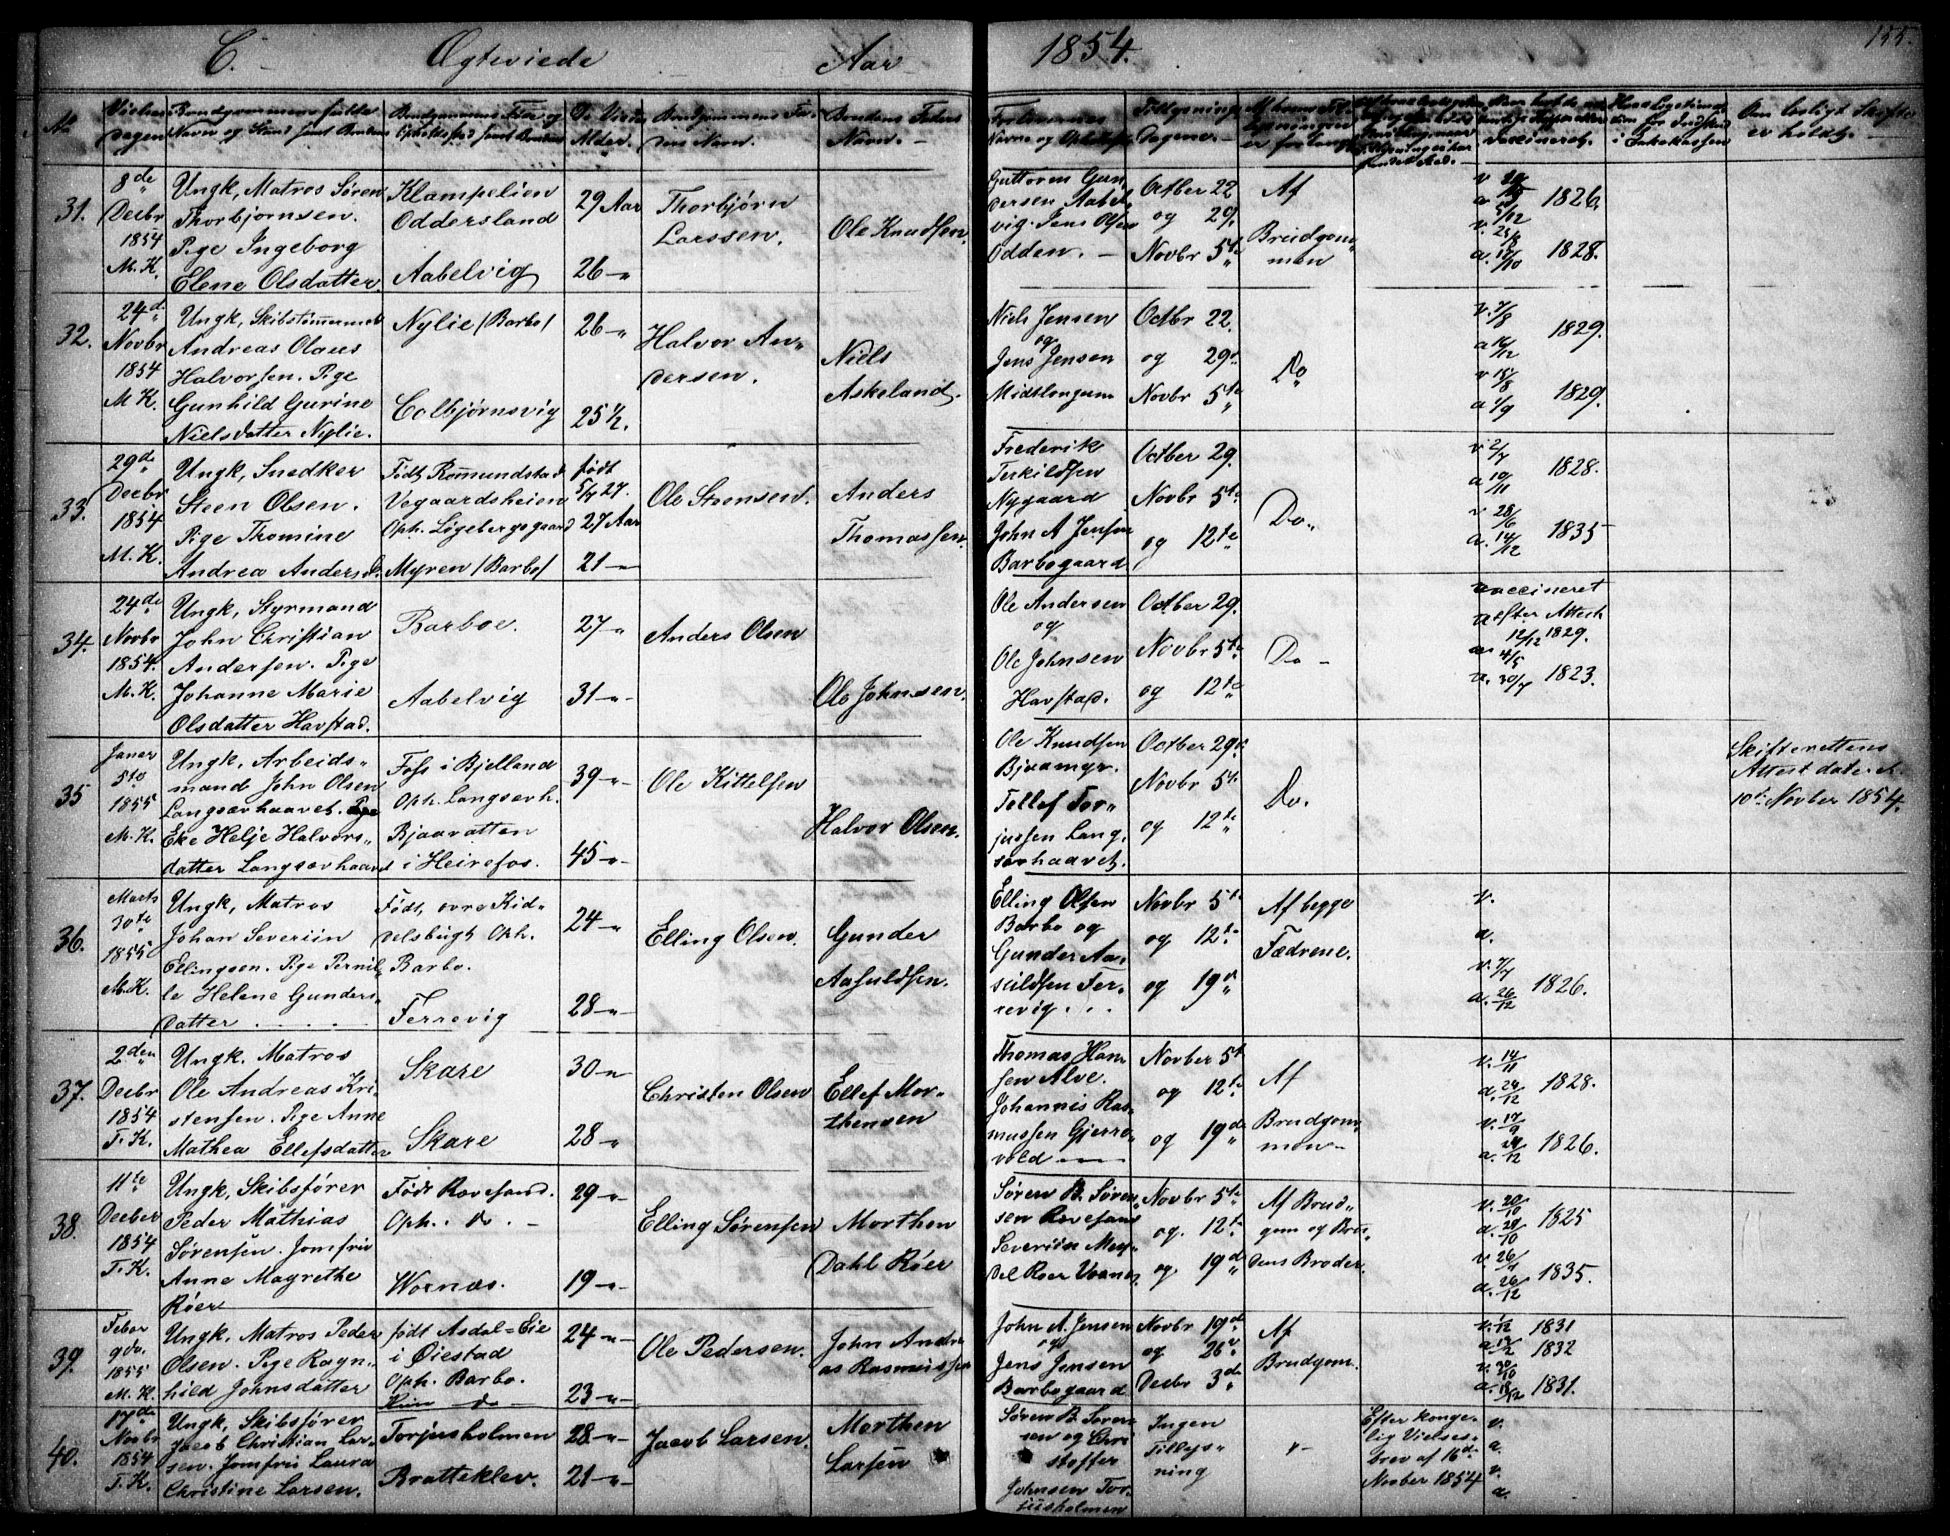 C. Ægteviede Aar 1854. 155.
No
Vielses
dagen
Brudgommens fulde
Navn og Stand samt Brudens
Brudgommens Føde og
Opholdssted samt Brudens
De Viedes
Alder.
Brudgommens Fa-
ders Navn.
Brudens Faders
Navn.
Forlovernes
Navne og Opholdssted
Tillysnings
Dagene.
Af hvem Til
lysningen
er forlangt
vaccineret.
i Enkekassen
Om lovligt Skifte
er holdt.
31.
8de
Decbr
1854
M. K.
Ungk, Matros Søren
Thorbjørnsen.
Pige Ingeborg
Elene Olsdatter.
Klampelien
Oddersland
Aabelvig
29 Aar
26 -"
Thorbjørn
Larssen.
Ole Knudsen.
Guttorm Gun
dersen Aabel
vig. Jens Olsen
Odden. -
Octber 22
og 29.
Novbr 5te
Af
Brudgom
men
1826.
1828.
32.
24de
Novbr
1854
M K.
Ungk, Skibstømmermand
Andreas Olaus
Halvorsen. Pige
Gunhild Gurine
Nielsdatter Nylie.
Nylie /Barbo/
Colbjørnsvig
26 -"
25 ½.
Halvor An-
dersen.
Niels
Askeland.
Niels Jensen
og
Jens Jensen
Octbr 22.
og 29de
Novbr 5te
Do
v. 7/8
1829.
v 18/8
a 1/9
1829.
33.
29de
Decbr
1854
M. K.
Ungk, Snedker
Steen Olsen.
Pige Thomine
Andrea Andersd.
Født, Romundstad
Vegaardsheien
Oph. Løgebergsgaard
Myren /Barbo/
født
5/7 27.
27 Aar
21 -"
Ole Steensen.
Anders
Thomassen.
Frederik
Terkildsen
Nygaard
John A Jensen
Barbogaard
Octber 29.
Novbr 5te
og 12te
Do.
v 2/7
a 10/11
1828.
v 28/6
a. 14/12
1835
34.
24de
Novbr
1854.
M. K.
Ungk, Styrmand
John Christian
Andersen. Pige
Johanne Marie
Olsdatter Havstad.
Barboe.
Aabelvig
27 -"
31 -"
Anders Olsen
Ole Johnsen.
Ole Andersen
og
Ole Johnsen
Havstad.
Octber 29.
Novbr 5te
og 12te
Do -
vaccineret
efter Attest
12/12 1829.
4/5
a. 30/7 1823.
35
Janer
5te
1855
M. K.
Ungk, Arbeids-
mand John Olsen
Langsævhaavet. Pige
Eke Helje Halvors-
datter Langsævhaavet
Foss i Bjelland
Oph. Langsævh.
Bjaavatten
i Heirefos.
39 -"
45 -"
Ole Kittelsen
Halvor Olsen.
Ole Knudsen
Bjaamyr.
Tellef Tor-
jussen Lang,
sævhaavet.
Octber 29de
Novbr 5te
og 12te
Do.
Skifterettens
Attest dateret
10de Novber 1854.
36.
Marts
30te
1855
M. K.
Ungk, Matros
Johan Severiin
Ellingsen. Pige Pernil
le Helene Gunders-
datter
Født, øvre Kid-
delsbugt Oph.
Barbo.
Ferrevig
24 -"
28 -"
Elling Olsen.
Gunder
Aasuldsen.
Elling Olsen
Barbo og
Gunder Aa-
suldsen Fer-
revig.
Novbr 5te
og 12te
og 19de
Af begge
Fædrene.
v.
a.
v. 7/7
a. 26/12
1826.
37.
2den
Decbr
1854
T. K.
Ungk. Matros
Ole Andreas Kri
stensen. Pige Anne
Mathea Ellefsdatter
Skare
Skare
30 -"
28 -"
Christen Olsen
Ellef Mor-
thensen
Thomas Han
sen Alve.
Johannis Ras-
mussen Gjerre-
vold
Novber 5te
og 12te
og 19de
Af
Brudgom
men -
v. 14/11
a. 24/12
1828.
v. 17/9
1826.
38.
11te
Decber
1854
T. K.
Ungk, Skibsfører
Peder Mathias
Sørensen. Jomfru
Anne Magrethe
Röer
Født Ravesand.
Oph. do. -
Wornæs.
29 -"
19 -"
Elling Sørensen
Morthen
Dahl Röer
Søren B. Søren-
sen Ravesand
Severin Mey-
del Roer Vornæs
Novbr 5te
og. 12te
og 19de
Af Brud-
gom og Bru-
dens Broder.
v. 20/10
a. 20/10
1825
a. 26/12
1835.
39.
Febor
9de.
1855
M. K
Ungk, Matros Peder
Olsen. Pige Ragn-
hild Johnsdatter
født Asdal=Eie
i Øiestad
Oph. Barbo.
do -
24 -"
23 -"
Ole Pedersen.
John Andre
as Rasmussen
John A. Jensen
og
Jens Jensen
Barbogaard
Novbr 19de
og 26de
Decbr 3de
Af
Brudgom.
1831
1832
1831.
40.
17de
Novbr
1854
T. K.
Ungk, Skibsfører
Jacob Christian Lar-
sen. Jomfru Laura
Christine Larsen.
Torjusholmen
Bratteklev.
28 -"
21 -"
Jacob Larsen.
Morthen
Larsen
Søren B. Søren
sen og Chri
stoffer
Johnsen Tor
jusholmen
Ingen
Tillys-
ning
Efter konge-
lig Vielses-
brev af 16de
Novber 1854
v.
a.
v.
a.